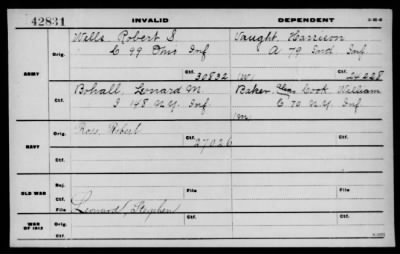 42831 INVALID DEPENDENT
Wells Robert S. Vaught, Harrison
Orig. C 99 Ohio Inf Orig. A 79 Ind. Inf.
30832 (W) 24228
ARMY Ctf. Ctf.
Bohall, Lenard M Baker, Chas Cook William
Ctf. I 148 N.Y. Inf. C 70 N.Y. Inf
(M)
Orig. Ross, Robert Ctf. Orig. Ctf.
27026
NAVY
Ctf. Ctf.
Rej.
OLD WAR Ctf. File File
File Leonard, Stephen
WAR OF 1812 Ctf. Ctf.